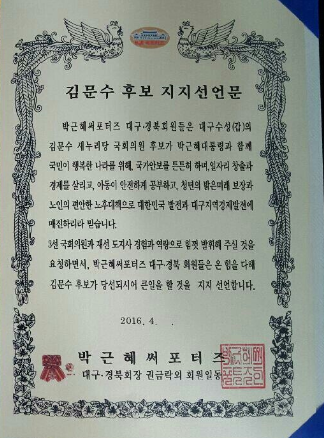 김문수 후보 지지선언문
박근혜써포터즈 대구·경북회원들은 대구수성(갑)의
김문수 새누리당 국회의원 후보가 박근혜대통령과 함께
국민이 행복한 나라를 위해, 국가안보를 튼튼히 하며, 일자리 창출과
경제를 살리고, 아동이 안전하게 공부하고, 청년의 밝은미래 보장과
노인의 편안한 노후대책으로 대한민국 발전과 대구지역경제발전에
매진하리라 믿습니다.
3선 국회의원과 재선 도지사 경험과 역량으로 힘껏 발휘해 주실 것을
요청하면서, 박근혜써포터즈 대구·경북 회원들은 온 힘을 다해
김문수 후보가 당선되시어 큰일을 할 것을 지지 선언합니다.
2016. 4. .
박근혜써포터즈
대구·경북회장 권금락외 회원일동